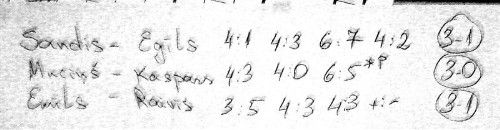 Sandis - Egils 4:1 4:3 6:7 4:2 3-1
Muciņš - Kaspars 4:3 4:0 6:5*P 3-0
Emīls - Raivis 3:5 4:3 4:3 +:- 3-1